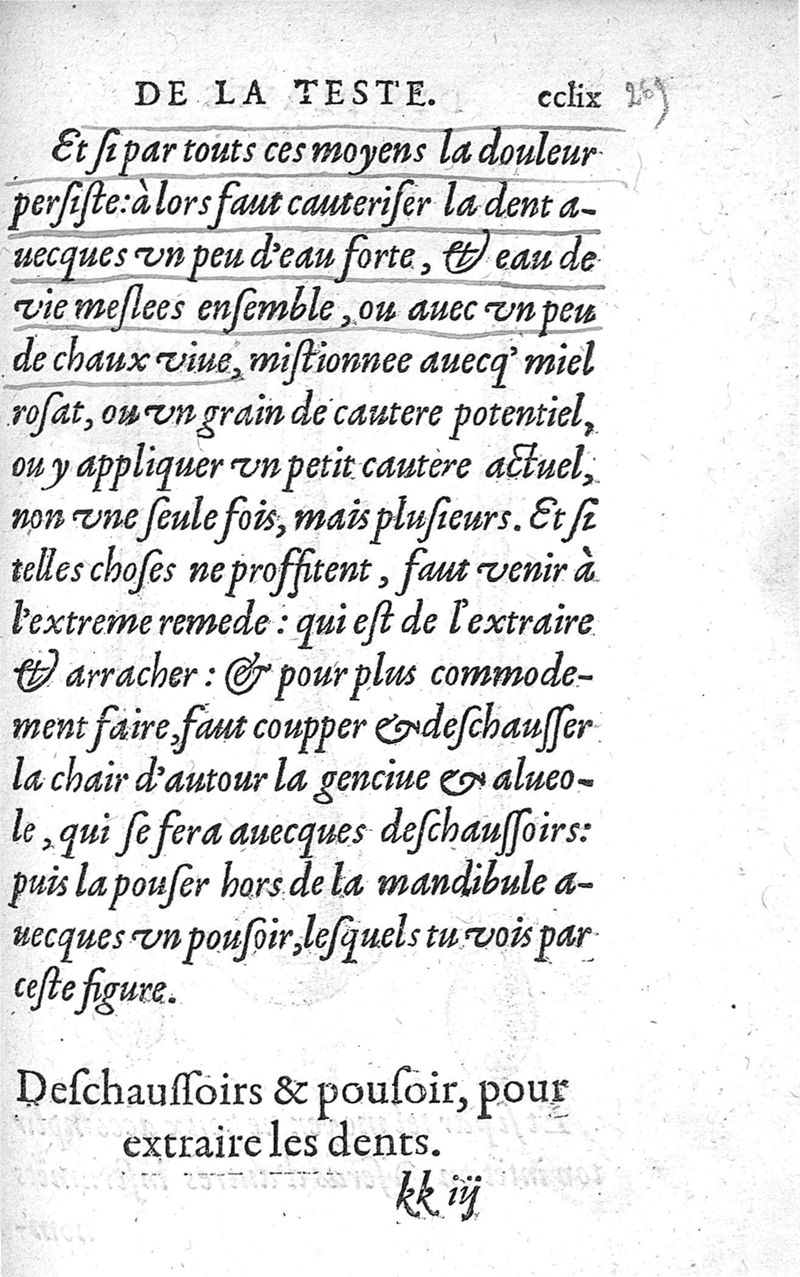 DE LA TESTE. cclix 269
Et ſi par touts ces moyens la douleur
perſiſte: à lors faut cauteriſer la dent a-
uecques vn peu d'eau forte, & eau de
vie meſlees enſemble, ou auec vn peu
de chaux viue, miſtionnee auecq' miel
roſat, ou vn grain de cautere potentiel,
ou y appliquer vn petit cautere actuel,
non vne ſeule fois, mais pluſieurs. Et ſi
telles choſes ne proffitent, faut venir à
l'extreme remede: qui eſt de l'extraire
& arracher: & pour plus commode-
ment faire, faut coupper & deſchauſſer
la chair d'autour la genciue & alueo-
le, qui ſe fera auecques deſchauſſoirs:
puis la pouſer hors de la mandibule a-
uecques vn pouſoir, leſquels tu vois par
ceſte figure.
Deſchauſſoirs & pouſoir, pour
extraire les dents.
kk iij